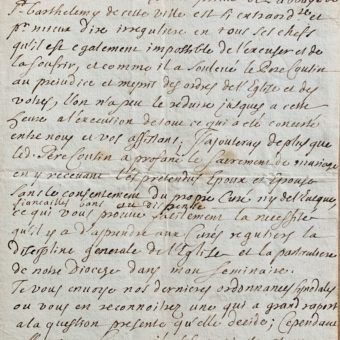 St barthelemy de cette ville est si extraordre et
pr mieux dire irreguliere en tous ses chefs
qu'il est egalement impossible de l'excuser et de
la soufrir, et comme il a soulevé le Pere Coutin
au prejudice et mepris des ordres de l'Eglise et des
votres l'on n'a peu le reduire jusques a cette
heure a l'execution de tout ce qui a été concerté
entre nous et vos assistans; J'ajouteray de plus que
led. Pere Coutin a profané le sacrement de mariage
en y recevant les pretendus Epoux et Epouse
sans le consentement du propre Curé ny de l'Evêque
fiancailles bans et
ce qui vous prouve facilement la necessité
qu'il y a d'aprendre aux Curés reguliers la
discipline generale de l'Eglise et la particuliere
de notre diocese dans mon seminaire.
Je vous envoye nos dernieres ordonnances synodales
ou vous en reconnoitrez une qui a grand raport
a la question presente qu'elle decide; Cependant